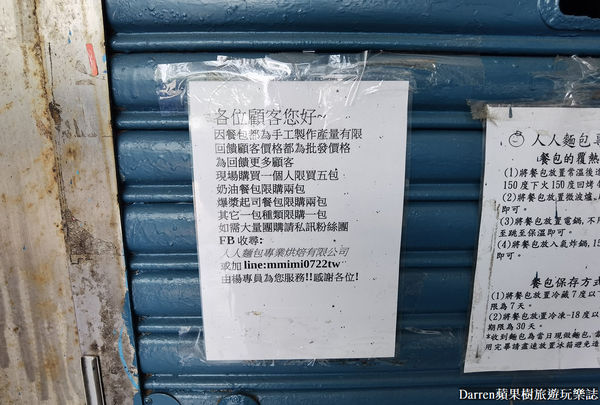 各位顧客您好~
因餐包都為手工製作產量有限
回饋顧客價格都為批發價格
為回饋更多顧客
現場購買一個人限買五包
奶油餐包限購兩包
爆漿起司餐包限購兩包
其它一包種類限購一包
如需大量團購請私訊粉絲團
FB 收尋:
人人麵包專業烘焙有限公司
或加 line:mmimi0722tw
由楊專員為您服務!!感謝各位!
人人麵包專
餐包的覆熱
(1)將餐包放置常溫後
150度下火150度回烤
(2)將餐包放置微波爐
即可。
(3)將餐包放置電鍋,不
至跳至保溫即可。
(4)將餐包放入氣炸鍋,15
即可。
餐包保存方式
(1)將餐包放置冷藏7度以
限為7天。
(2)將餐包放置冷凍-18度以
期限為30天。
*收到麵包為當日現做麵包,當
用完畢請盡速放置冰箱避免造
Darren蘋果樹旅遊玩樂誌